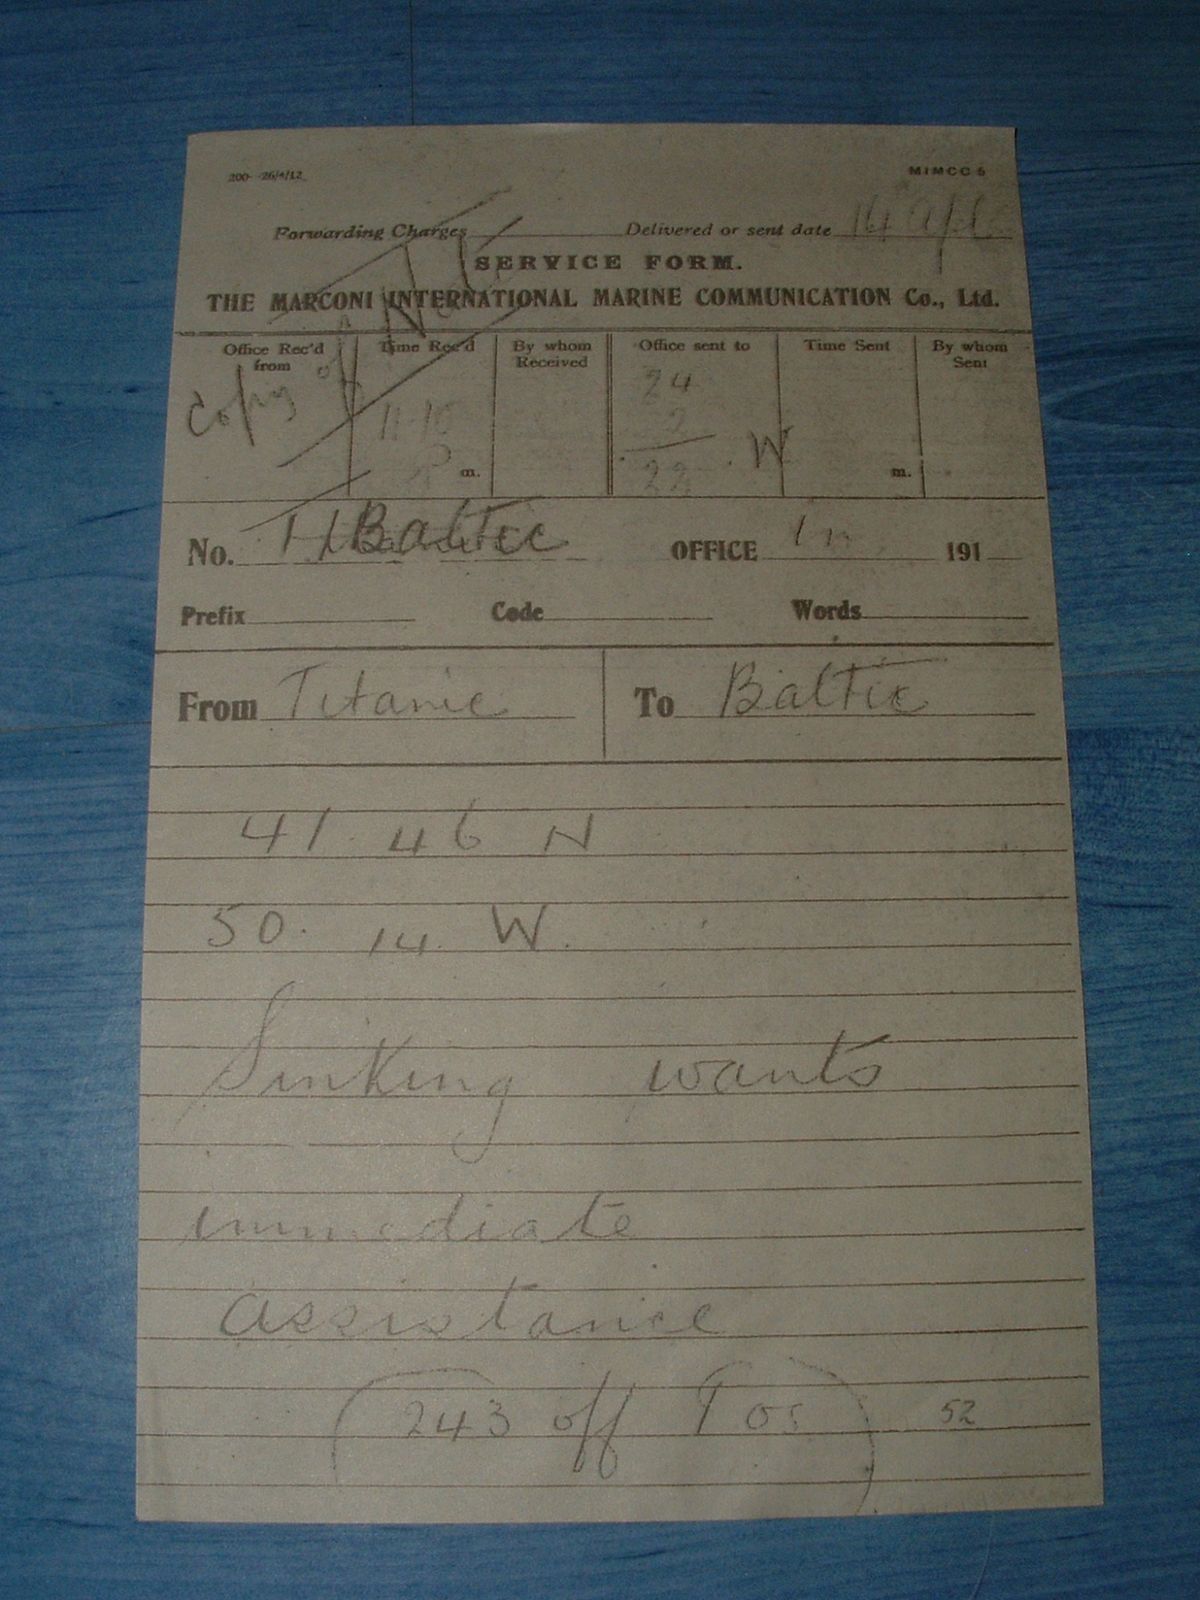 200- 26/4/12 MIMCC 5
Forwarding Charges Delivered or sent date 14 Apl
SERVICE FORM.
THE MARCONI INTERNATIONAL MARINE COMMUNICATION Co., Ltd.
Office Rec'd from Time Rec'd By whom Received Office sent to Time Sent By whom Sent
Copy of
24
11-10 2
P m. 22 W m.
No. Baltic OFFICE 191
Prefix Code Words
From Titanic To Baltic
41. 46 N
50. 14. W.
Sinking wants
immediate
assistance
243 off Pos 52